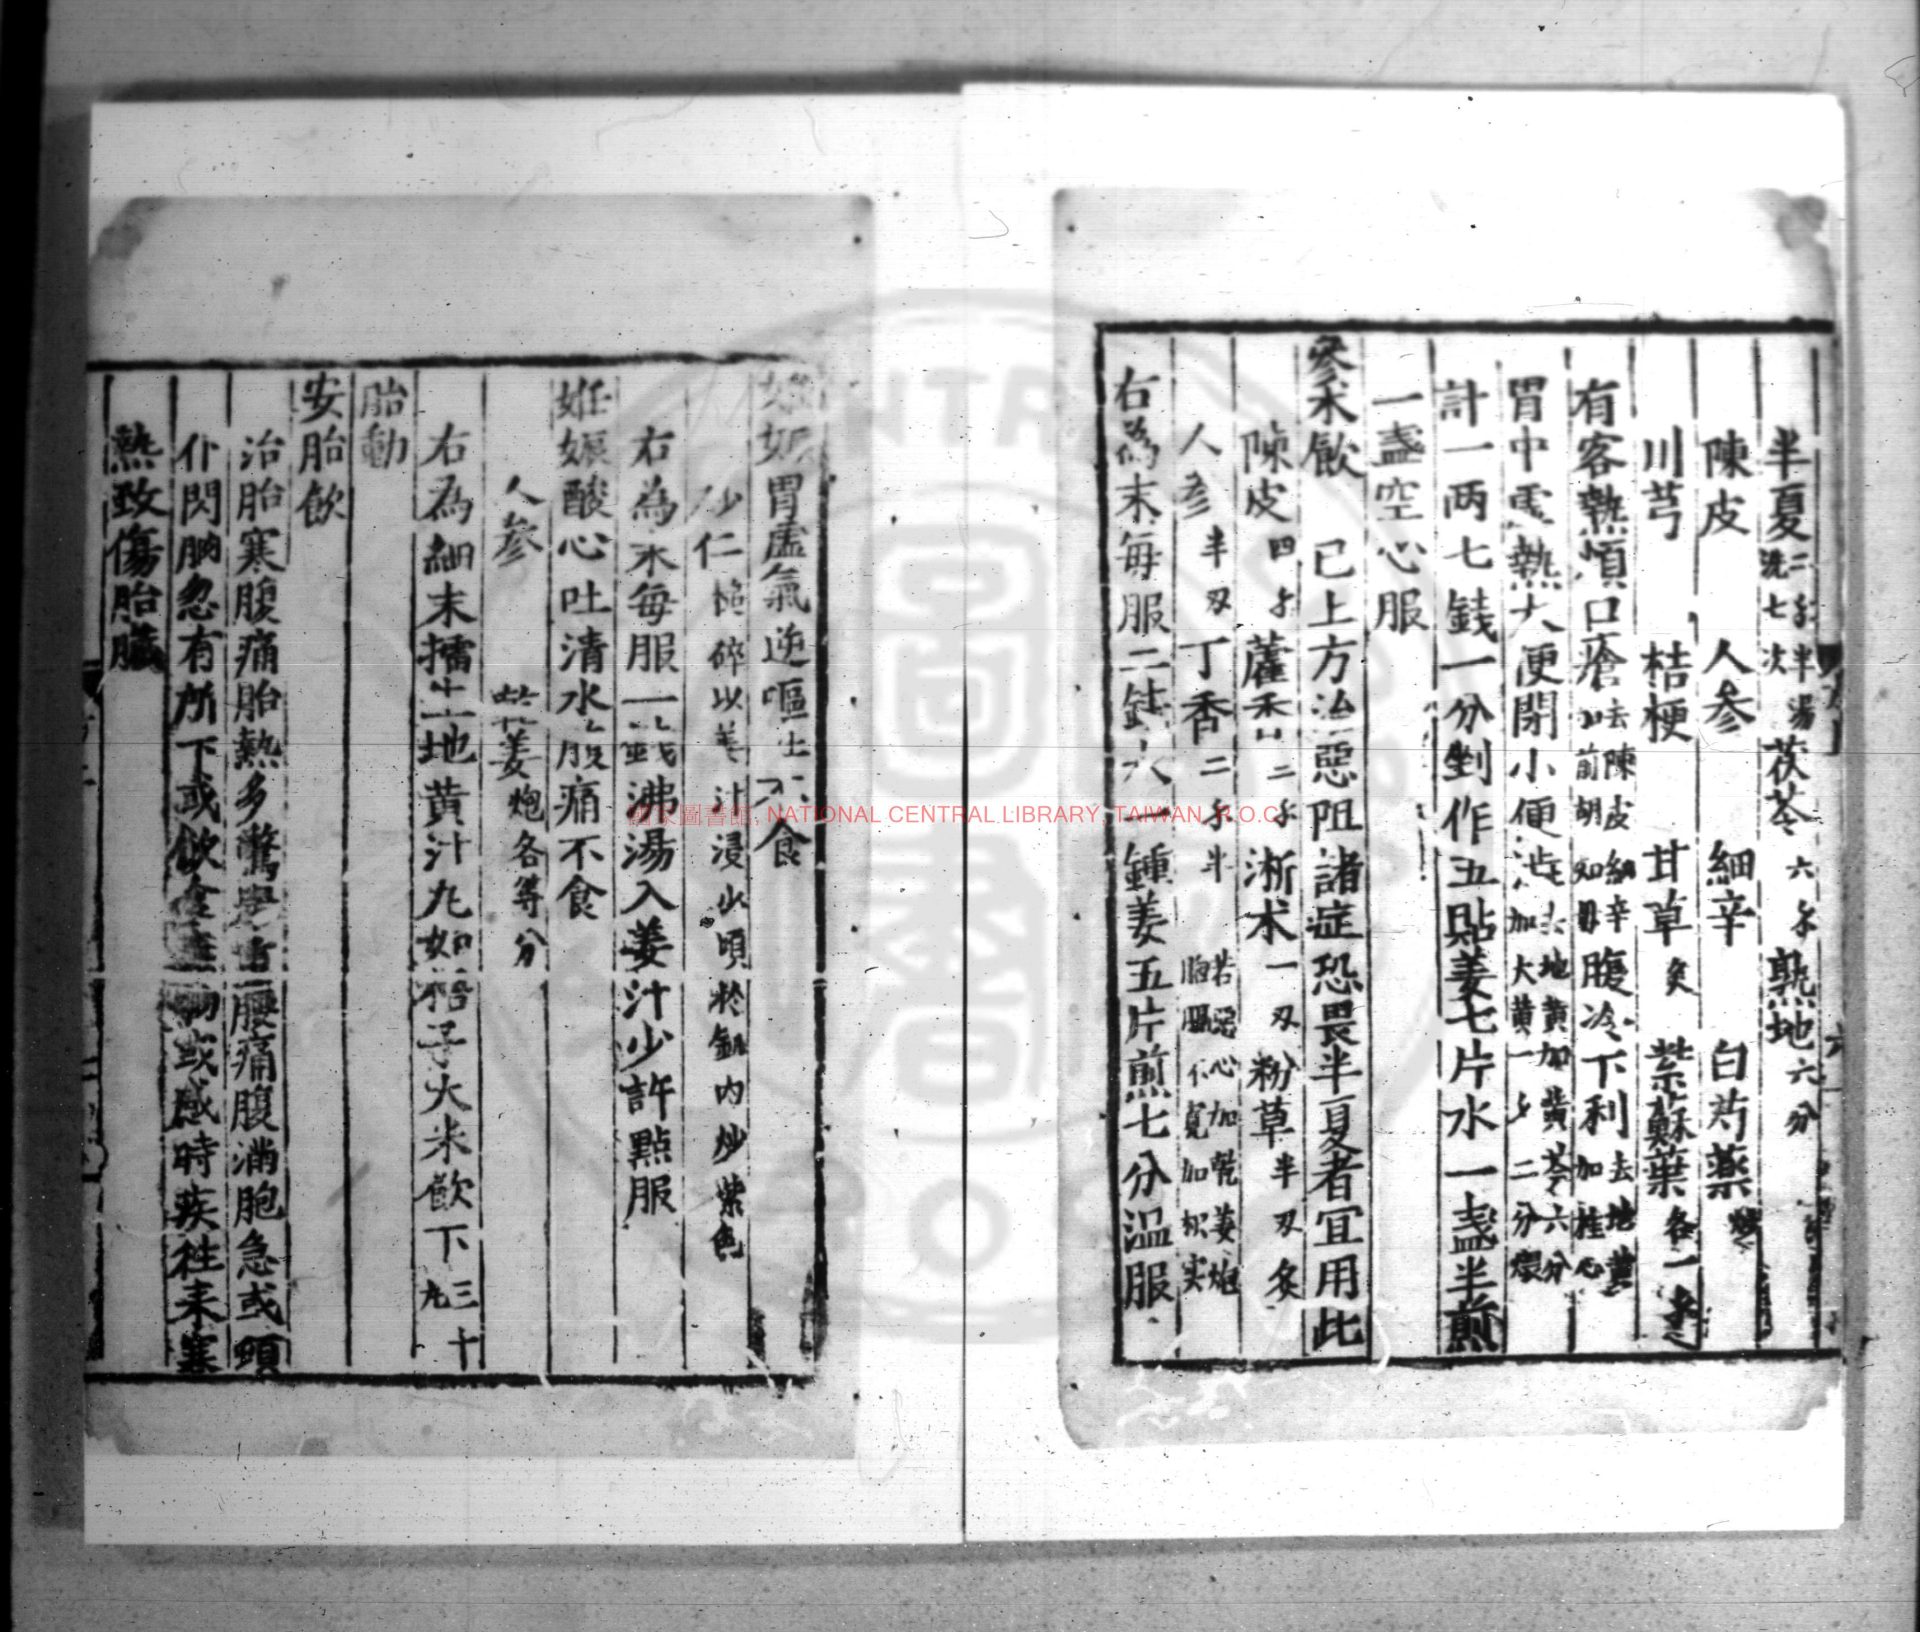 半夏二錢半湯洗七次 茯苓六錢 熟地六分
陳皮 人參 細辛 白芍藥
川芎 桔梗 甘草炙 紫蘇葉各一錢
有客熱煩口瘡去陳皮細辛加前胡知母腹冷下利去地黃加桂心
胃中虛熱大便閉小便澁去地黃加黃芩六分加大黃一錢二分
計一两七錢一分剉作五貼姜七片水一盞半煎
一盞空心服
參术飲 已上方治惡阻諸症恐畏半夏者宜用此
陳皮四錢 藿香二錢 淅术一刄 粉草半刄炙
人參半刄 丁香二錢半 若惡心加乾姜炮胸膈不寬加枳实
右為末每服二錢水一鍾姜五片煎七分温服
妊娠胃虛氣逆嘔吐不食
砂仁槌碎以姜汁浸少頃於銚內炒紫色
右為末每服一錢沸湯入姜汁少許點服
妊娠酸心吐清水腹痛不食
人參 乾姜炮各等分
右為細末擂生地黃汁丸如梧子大米飲下三十丸
胎動
安胎飲
治胎寒腹痛胎熱多驚腰痛腹滿胞急或頓
仆閃肭忽有所下或飲食或感時疾徃来寒
熱致傷胎臟
國家圖書館, NATIONAL CENTRAL LIBRARY, TAIWAN, R.O.C.